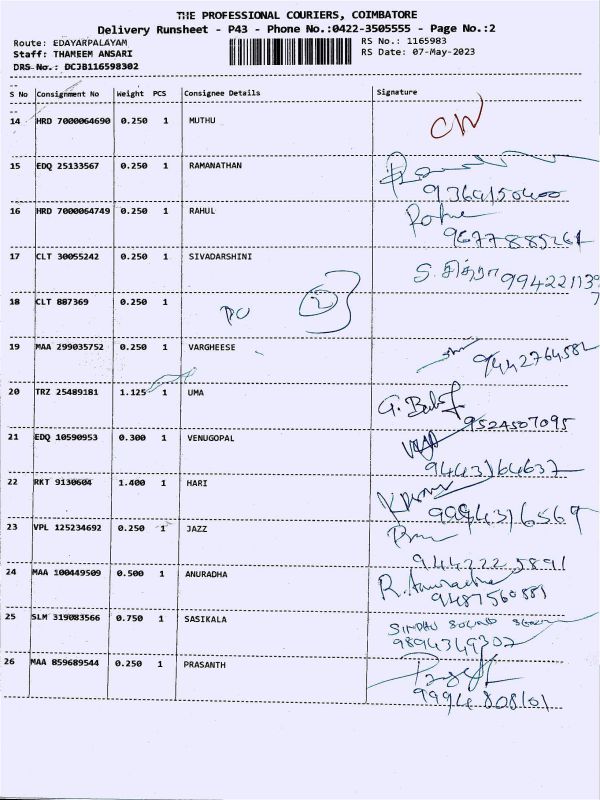 THE PROFESSIONAL COURIERS, COIMBATORE
Delivery Runsheet - P43 - Phone No.:0422-3505555 - Page No.:2
Route: EDAYARPALAYAM RS No.: 1165983
Staff: THAMEEM ANSARI RS Date: 07-May-2023
DRS No.: DCJB116598302
S No Consignment No Weight PCS Consignee Details Signature
14 HRD 7000064690 0.250 1 MUTHU
15 EDQ 25133567 0.250 1 RAMANATHAN
16 HRD 7000064749 0.250 1 RAHUL
17 CLT 30055242 0.250 1 SIVADARSHINI
18 CLT 887369 0.250 1
19 MAA 299035752 0.250 1 VARGHEESE
9442764582
20 TRZ 25489181 1.125 1 UMA
9524507095
21 EDQ 10590953 0.300 1 VENUGOPAL
9443164637
22 RKT 9130604 1.400 1 HARI
23 VPL 125234692 0.250 1 JAZZ
9442225891
24 MAA 100449509 0.500 1 ANURADHA
R. Anuradha
9487560881
25 SLM 319083566 0.750 1 SASIKALA
9894349302
26 MAA 859689544 0.250 1 PRASANTH
9994808101